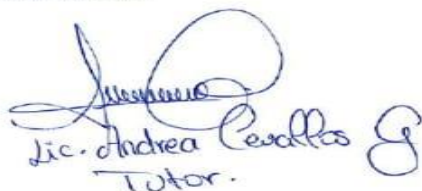 Lic. Andrea Cevallos G
Tutor.